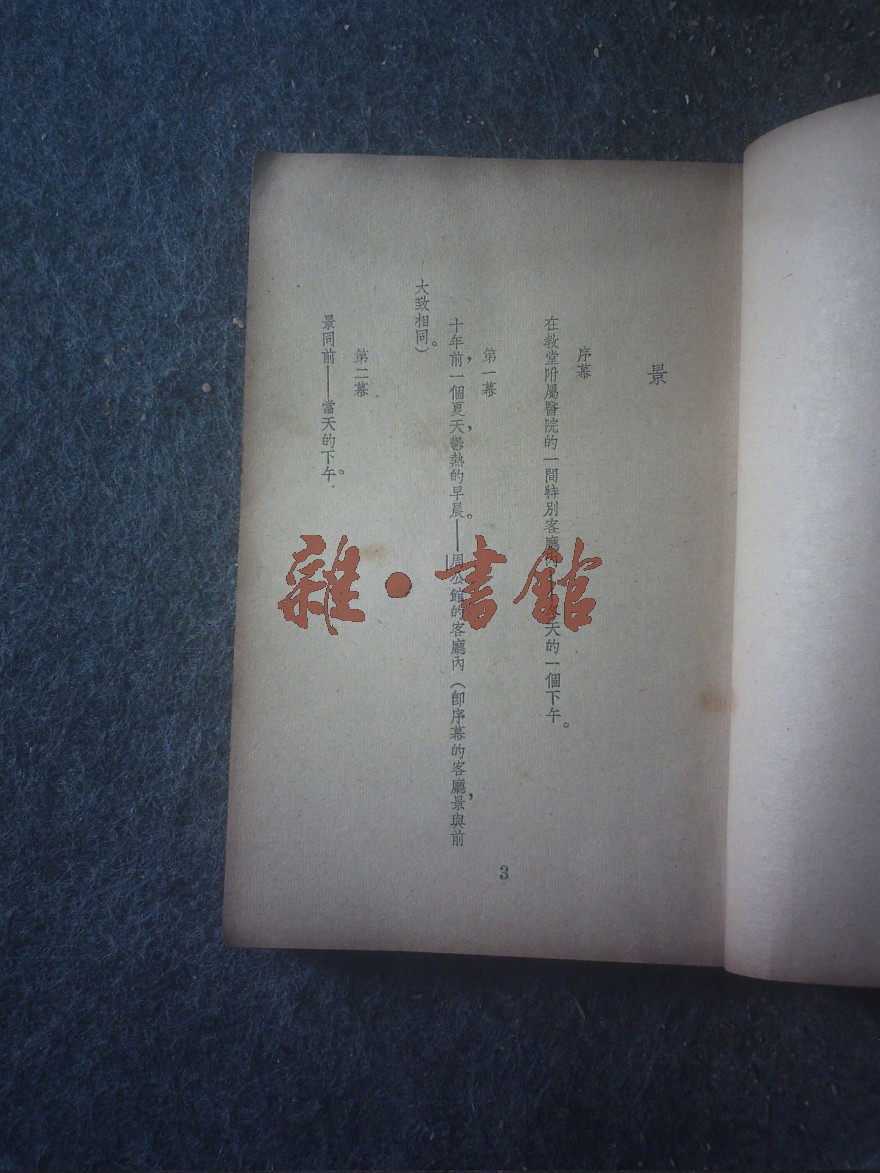 景
序幕
在教堂附屬醫院的一間特別客廳內 冬天的一個下午。
第一幕
十年前,一個夏天,鬱熱的早晨。——周公館的客廳內(卽序幕的客廳,景與前
大致相同。)
第二幕
景同前——當天的下午。
3
雜·書館